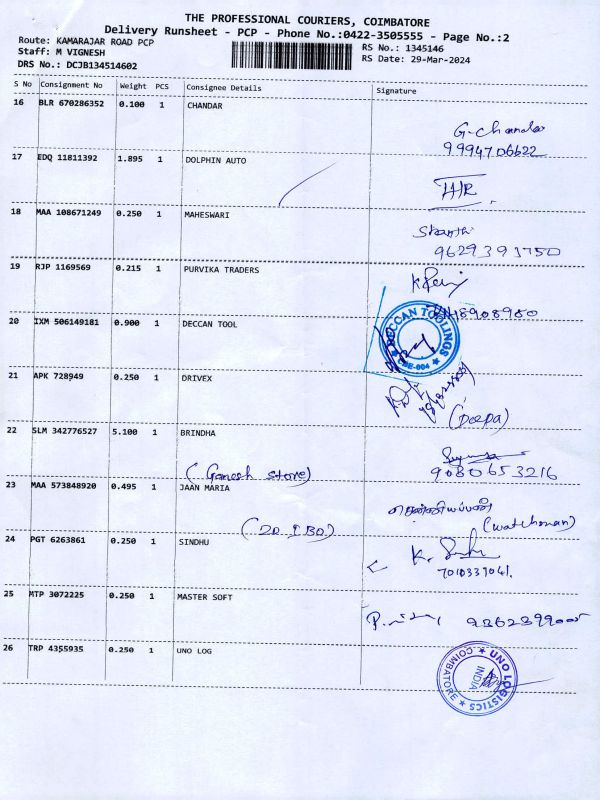 THE PROFESSIONAL COURIERS, COIMBATORE
Delivery Runsheet - PCP - Phone No.:0422-3505555 - Page No.:2
Route: KAMARAJAR ROAD PCP
RS No.: 1345146
Staff: M VIGNESH
RS Date: 29-Mar-2024
DRS No.: DCJB134514602
S No Consignment No Weight PCS Consignee Details Signature
16 BLR 670286352 0.100 1 CHANDAR
G. Chandar
9994706622
17 EDQ 11811392 1.895 1 DOLPHIN AUTO
18 MAA 108671249 0.250 1 MAHESWARI
9629391750
19 RJP 1169569 0.215 1 PURVIKA TRADERS
20 IXM 506149181 0.900 1 DECCAN TOOL
DECCAN TOOLINGS
CBE-004
21 APK 728949 0.250 1 DRIVEX
(Deepa)
22 SLM 342776527 5.100 1 BRINDHA
(Ganesh store)
9080653216
23 MAA 573848920 0.495 1 JAAN MARIA
சென்னியப்பன்
(watchman)
24 PGT 6263861 0.250 1 SINDHU
7010331041.
25 MTP 3072225 0.250 1 MASTER SOFT
26 TRP 4355935 0.250 1 UNO LOG
UNO LOGISTICS
COIMBATORE
INDIA